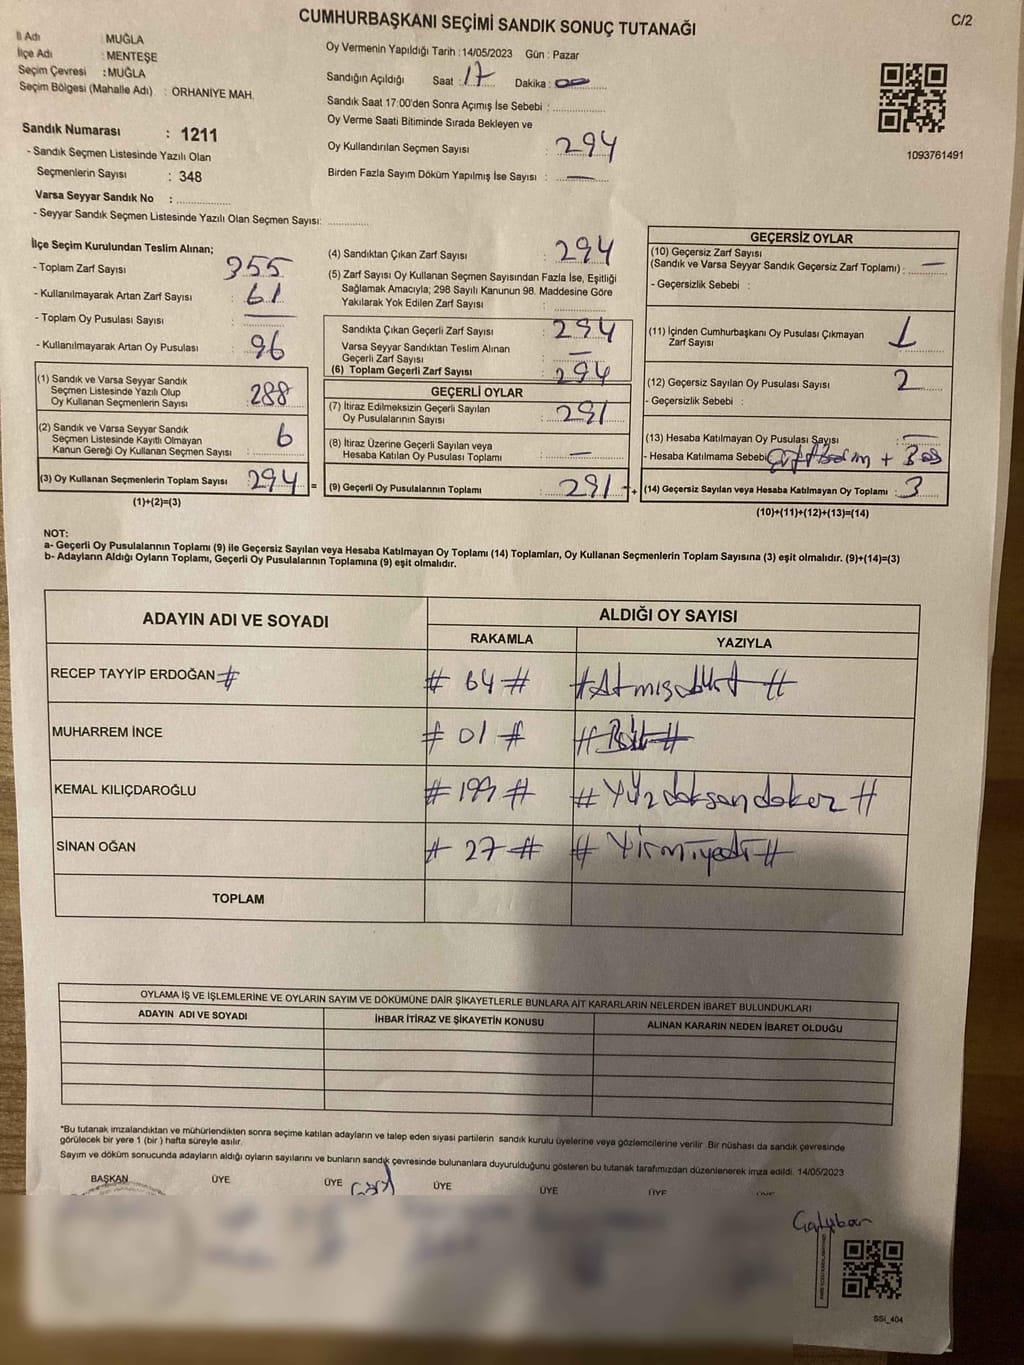 CUMHURBAŞKANI SEÇİMİ SANDIK SONUÇ TUTANAĞI
C/2
İl Adı : MUĞLA
İlçe Adı : MENTEŞE
Seçim Çevresi : MUĞLA
Seçim Bölgesi (Mahalle Adı) : ORHANİYE MAH.
Sandık Numarası : 1211
- Sandık Seçmen Listesinde Yazılı Olan
Seçmenlerin Sayısı : 348
Varsa Seyyar Sandık No :
- Seyyar Sandık Seçmen Listesinde Yazılı Olan Seçmen Sayısı:
Oy Vermenin Yapıldığı Tarih : 14/05/2023 Gün : Pazar
Sandığın Açıldığı Saat : 17 Dakika : 00
Sandık Saat 17:00'den Sonra Açımış İse Sebebi :
Oy Verme Saati Bitiminde Sırada Bekleyen ve
Oy Kullandırılan Seçmen Sayısı : 294
Birden Fazla Sayım Döküm Yapılmış İse Sayısı : —
1093761491
İlçe Seçim Kurulundan Teslim Alınan;
- Toplam Zarf Sayısı : 355
- Kullanılmayarak Artan Zarf Sayısı : 61
- Toplam Oy Pusulası Sayısı : —
- Kullanılmayarak Artan Oy Pusulası : 96
(1) Sandık ve Varsa Seyyar Sandık
Seçmen Listesinde Yazılı Olup
Oy Kullanan Seçmenlerin Sayısı : 288
(2) Sandık ve Varsa Seyyar Sandık
Seçmen Listesinde Kayıtlı Olmayan
Kanun Gereği Oy Kullanan Seçmen Sayısı : 6
(3) Oy Kullanan Seçmenlerin Toplam Sayısı : 294
(1)+(2)=(3)
(4) Sandıktan Çıkan Zarf Sayısı : 294
(5) Zarf Sayısı Oy Kullanan Seçmen Sayısından Fazla İse, Eşitliği
Sağlamak Amacıyla; 298 Sayılı Kanunun 98. Maddesine Göre
Yakılarak Yok Edilen Zarf Sayısı :
Sandıkta Çıkan Geçerli Zarf Sayısı : 294
Varsa Seyyar Sandıktan Teslim Alınan
Geçerli Zarf Sayısı : —
(6) Toplam Geçerli Zarf Sayısı : 294
GEÇERLİ OYLAR
(7) İtiraz Edilmeksizin Geçerli Sayılan
Oy Pusulalarının Sayısı : 291
(8) İtiraz Üzerine Geçerli Sayılan veya
Hesaba Katılan Oy Pusulası Toplamı : —
= (9) Geçerli Oy Pusulalarının Toplamı : 291 +
GEÇERSİZ OYLAR
(10) Geçersiz Zarf Sayısı
(Sandık ve Varsa Seyyar Sandık Geçersiz Zarf Toplamı) : —
- Geçersizlik Sebebi :
(11) İçinden Cumhurbaşkanı Oy Pusulası Çıkmayan
Zarf Sayısı : 1
(12) Geçersiz Sayılan Oy Pusulası Sayısı : 2
- Geçersizlik Sebebi :
(13) Hesaba Katılmayan Oy Pusulası Sayısı : —
- Hesaba Katılmama Sebebi
(14) Geçersiz Sayılan veya Hesaba Katılmayan Oy Toplamı : 3
(10)+(11)+(12)+(13)=(14)
NOT:
a- Geçerli Oy Pusulalarının Toplamı (9) ile Geçersiz Sayılan veya Hesaba Katılmayan Oy Toplamı (14) Toplamları, Oy Kullanan Seçmenlerin Toplam Sayısına (3) eşit olmalıdır. (9)+(14)=(3)
b- Adayların Aldığı Oyların Toplamı, Geçerli Oy Pusulalarının Toplamına (9) eşit olmalıdır.
ADAYIN ADI VE SOYADI
ALDIĞI OY SAYISI
RAKAMLA YAZIYLA
RECEP TAYYİP ERDOĞAN # # 64 # # Atmışdört #
MUHARREM İNCE # 01 # # Bir #
KEMAL KILIÇDAROĞLU # 199 # # Yüzdoksandokuz #
SİNAN OĞAN # 27 # # Yirmiyedi #
TOPLAM
OYLAMA İŞ VE İŞLEMLERİNE VE OYLARIN SAYIM VE DÖKÜMÜNE DAİR ŞİKAYETLERLE BUNLARA AİT KARARLARIN NELERDEN İBARET BULUNDUKLARI
ADAYIN ADI VE SOYADI İHBAR İTİRAZ VE ŞİKAYETİN KONUSU ALINAN KARARIN NEDEN İBARET OLDUĞU
*Bu tutanak imzalandıktan ve mühürlendikten sonra seçime katılan adayların ve talep eden siyasi partilerin sandık kurulu üyelerine veya gözlemcilerine verilir Bir nüshası da sandık çevresinde
görülecek bir yere 1 (bir ) hafta süreyle asılır.
Sayım ve döküm sonucunda adayların aldığı oyların sayılarını ve bunların sandık çevresinde bulunanlara duyurulduğunu gösteren bu tutanak tarafımızdan düzenlenerek imza edildi. 14/05/2023
BAŞKAN ÜYE ÜYE ÜYE ÜYE ÜYE ÜYE
SSİ_404